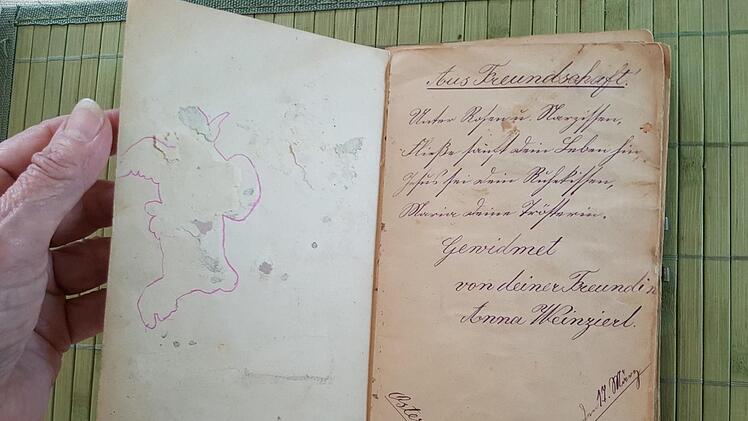 Aus Freundschaft!
Unter Rosen u. Narzissen,
Fließe sanft dein Leben hin,
Jesus sei dein Ruhekissen,
Maria deine Trösterin.
Gewidmet
von deiner Freundin
Anna Weinzierl.
Oster
den 17. März